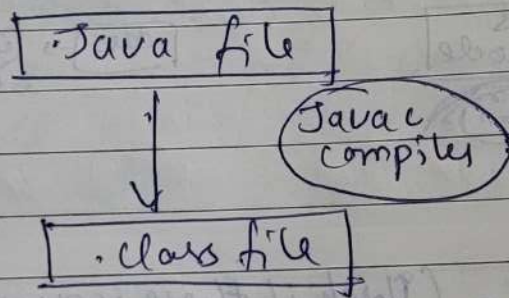 .Java file
Javac
compiler
.class file